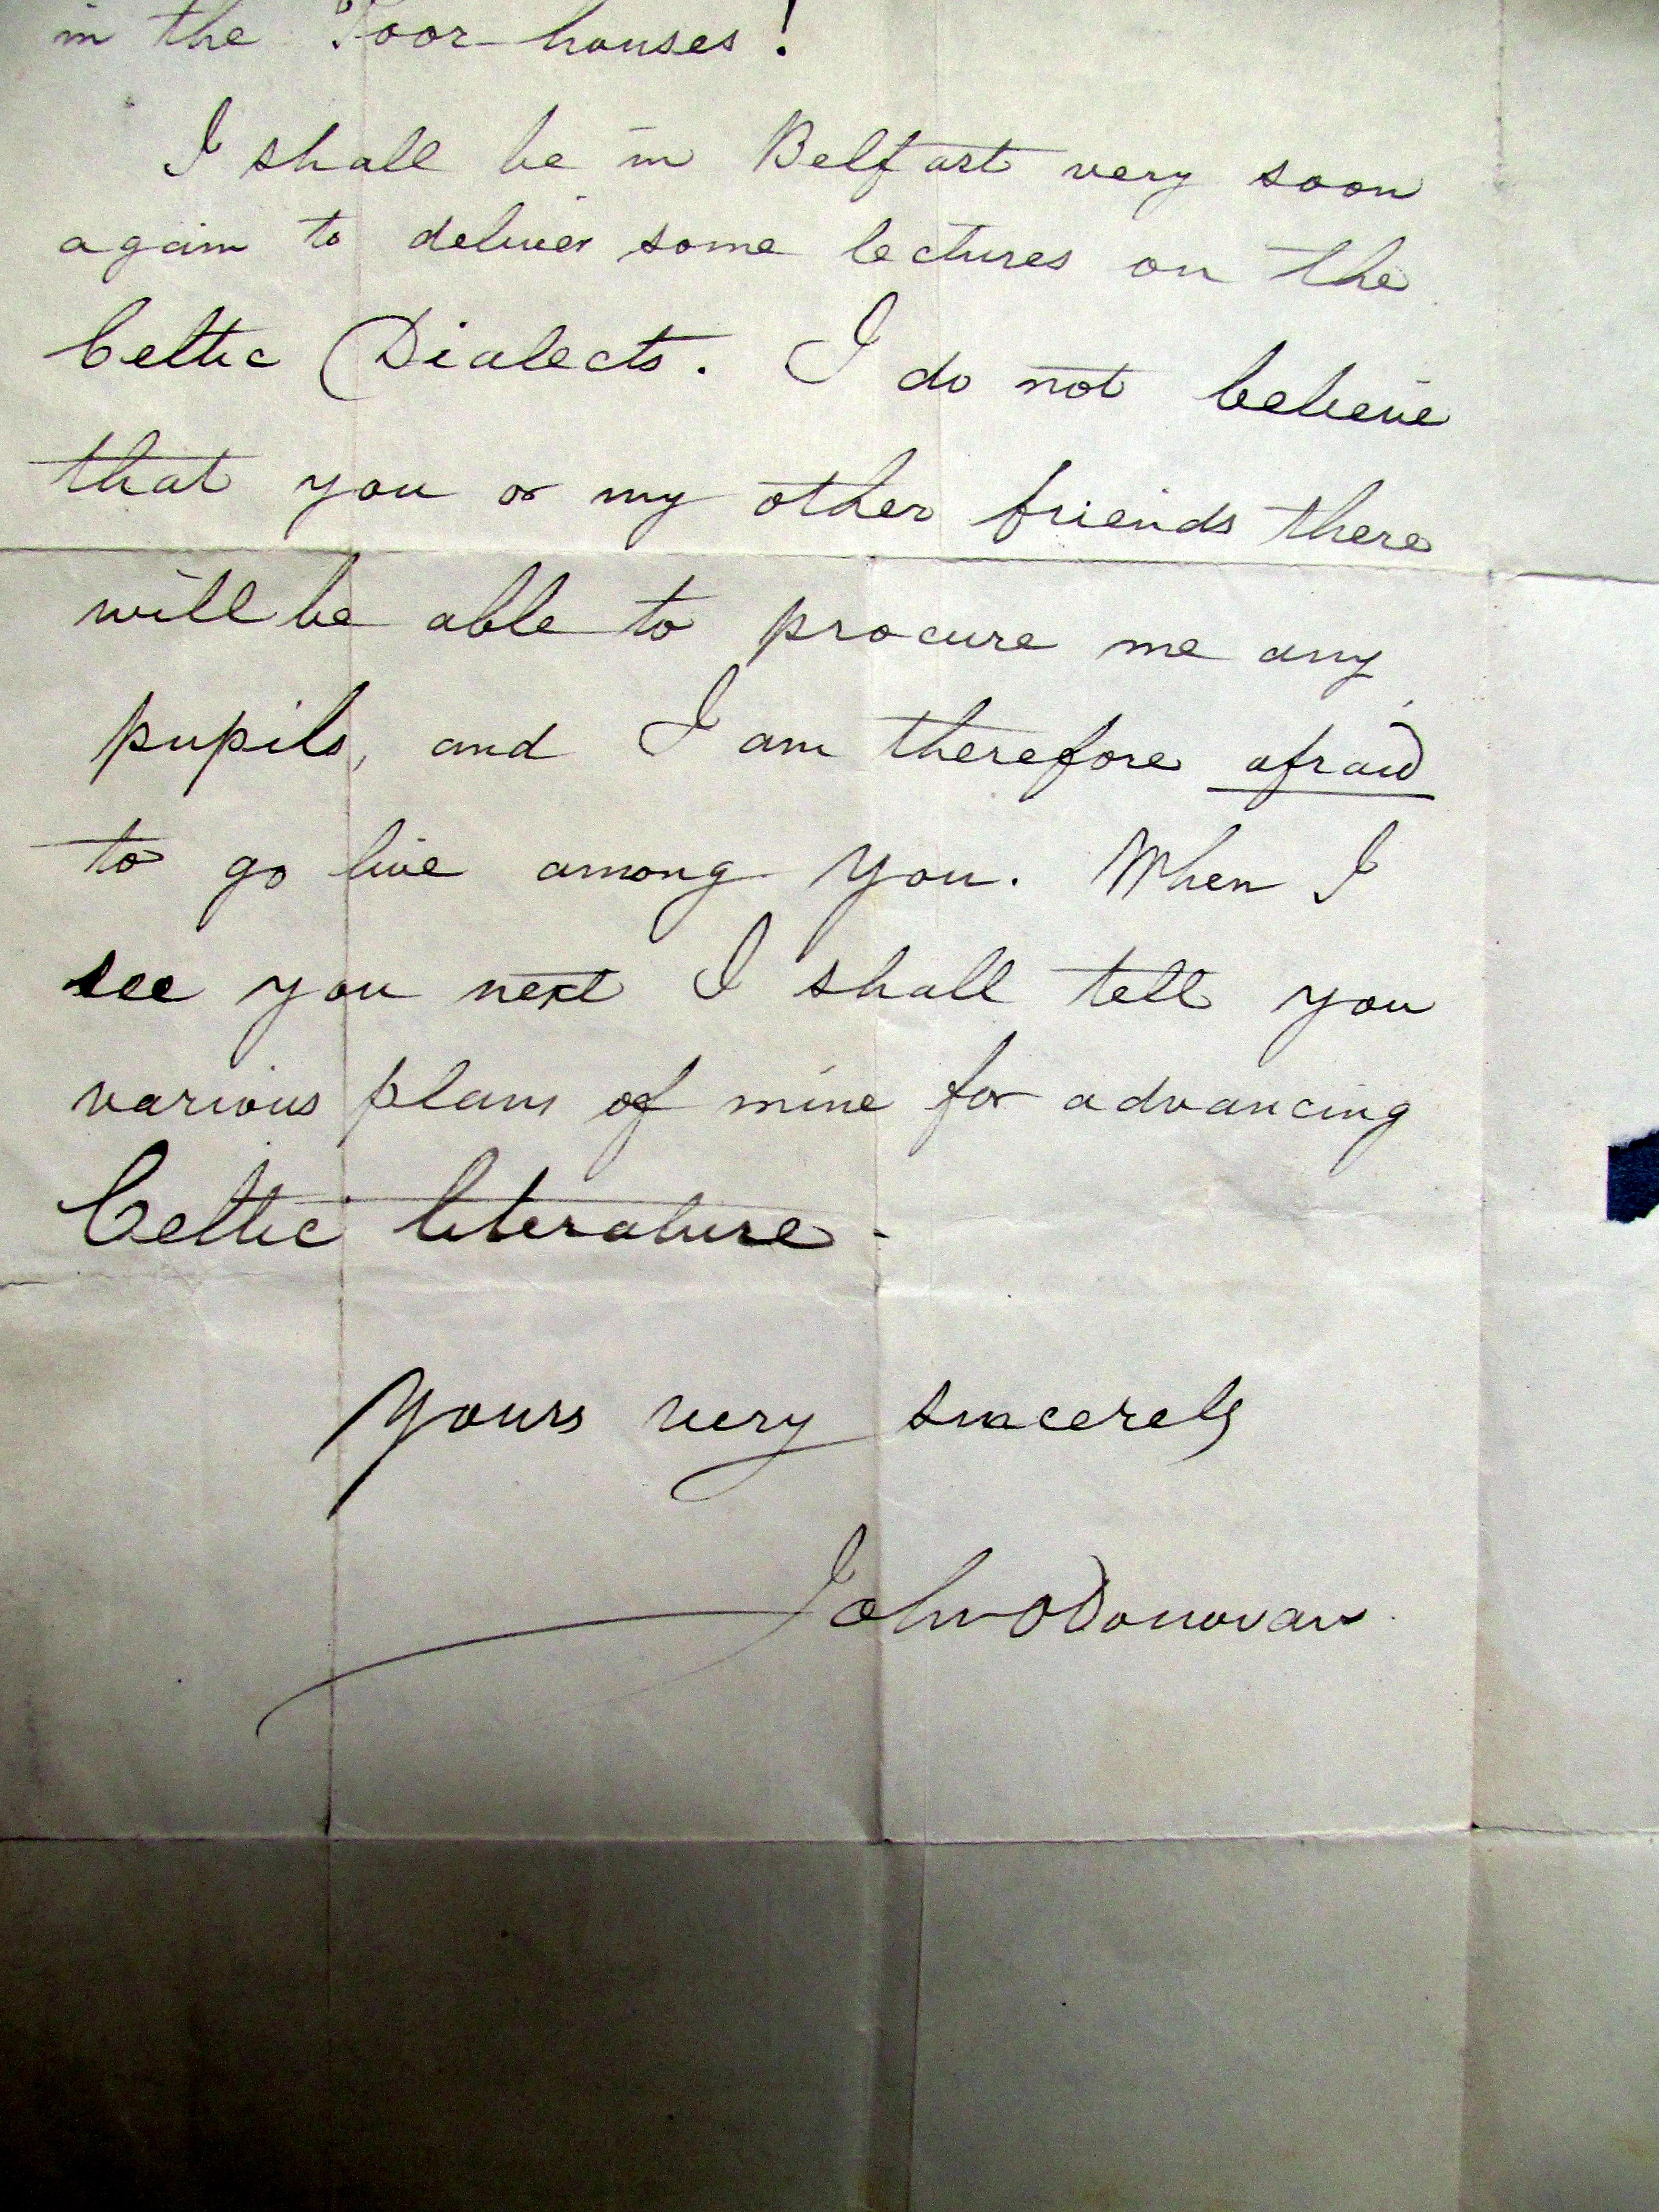 in the Poor houses!
I shall be in Belfast very soon
again to deliver some lectures on the
Celtic Dialects. I do not believe
that you or my other friends there
will be able to procure me any
pupils, and I am therefore afraid
to go live among you. When I
see you next I shall tell you
various plans of mine for advancing
Celtic literature -
Yours very sincerely
John O'Donovan